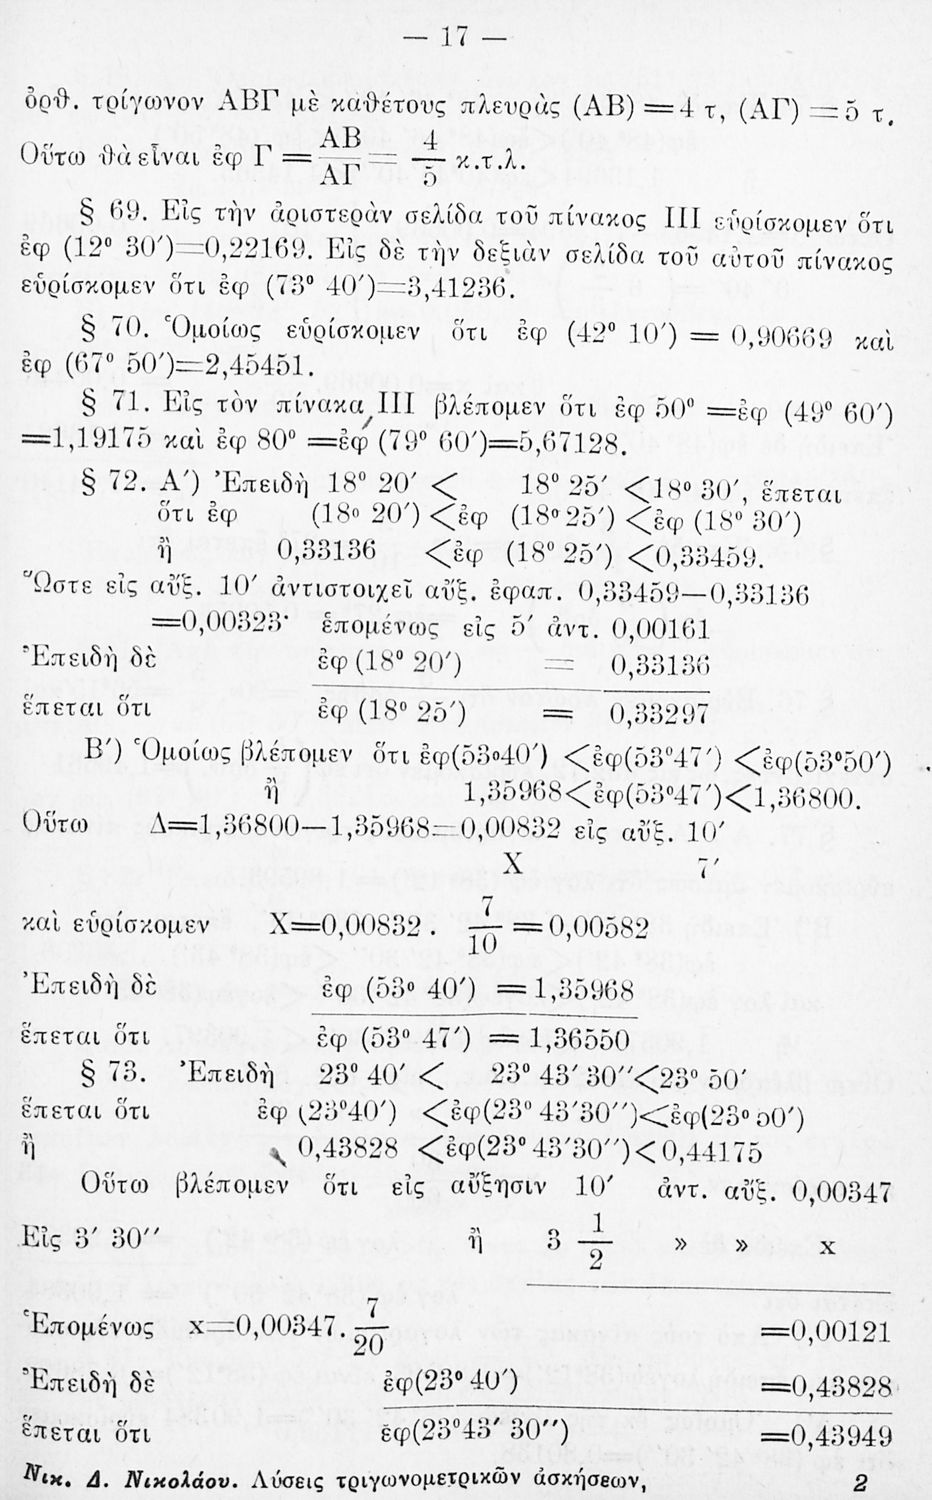 — 17 —
ὀρθ. τρίγωνον ΑΒΓ μὲ καθέτους πλευρὰς (ΑΒ) = 4 τ, (ΑΓ) = 5 τ.
Οὕτω θὰ εἶναι ἐφ Γ = ΑΒ/ΑΓ = 4/5 κ.τ.λ.
§ 69. Εἰς τὴν ἀριστερὰν σελίδα τοῦ πίνακος III εὑρίσκομεν ὅτι
ἐφ (12° 30′)=0,22169. Εἰς δὲ τὴν δεξιὰν σελίδα τοῦ αὐτοῦ πίνακος
εὑρίσκομεν ὅτι ἐφ (73° 40′)=3,41236.
§ 70. Ὁμοίως εὑρίσκομεν ὅτι ἐφ (42° 10′) = 0,90669 καὶ
ἐφ (67° 50′)=2,45451.
§ 71. Εἰς τὸν πίνακα III βλέπομεν ὅτι ἐφ 50° =ἐφ (49° 60′)
=1,19175 καὶ ἐφ 80° =ἐφ (79° 60′)=5,67128.
§ 72. Α′) Ἐπειδὴ 18° 20′ < 18° 25′ <18° 30′, ἕπεται
ὅτι ἐφ (18° 20′) <ἐφ (18° 25′) <ἐφ (18° 30′)
ἢ 0,33136 <ἐφ (18° 25′) <0,33459.
Ὥστε εἰς αὔξ. 10′ ἀντιστοιχεῖ αὔξ. ἐφαπ. 0,33459—0,33136
=0,00323· ἑπομένως εἰς 5′ ἀντ. 0,00161
Ἐπειδὴ δὲ ἐφ (18° 20′) = 0,33136
ἕπεται ὅτι ἐφ (18° 25′) = 0,33297
Β′) Ὁμοίως βλέπομεν ὅτι ἐφ(53°40′) <ἐφ(53°47′) <ἐφ(53°50′)
ἢ 1,35968<ἐφ(53°47′)<1,36800.
Οὕτω Δ=1,36800—1,35968=0,00832 εἰς αὔξ. 10′
Χ 7′
καὶ εὑρίσκομεν Χ=0,00832 . 7/10 = 0,00582
Ἐπειδὴ δὲ ἐφ (53° 40′) = 1,35968
ἕπεται ὅτι ἐφ (53° 47′) = 1,36550
§ 73. Ἐπειδὴ 23° 40′ < 23° 43′ 30″<23° 50′
ἕπεται ὅτι ἐφ (23°40′) <ἐφ(23° 43′30″)<ἐφ(23° 50′)
ἢ 0,43828 <ἐφ(23° 43′30″)<0,44175
Οὕτω βλέπομεν ὅτι εἰς αὔξησιν 10′ ἀντ. αὔξ. 0,00347
Εἰς 3′ 30″ ἢ 3 1/2 » » x
Ἑπομένως x=0,00347. 7/20 =0,00121
Ἐπειδὴ δὲ ἐφ(23° 40′) =0,43828
ἕπεται ὅτι ἐφ(23°43′ 30″) =0,43949
Νικ. Δ. Νικολάου. Λύσεις τριγωνομετρικῶν ἀσκήσεων, 2